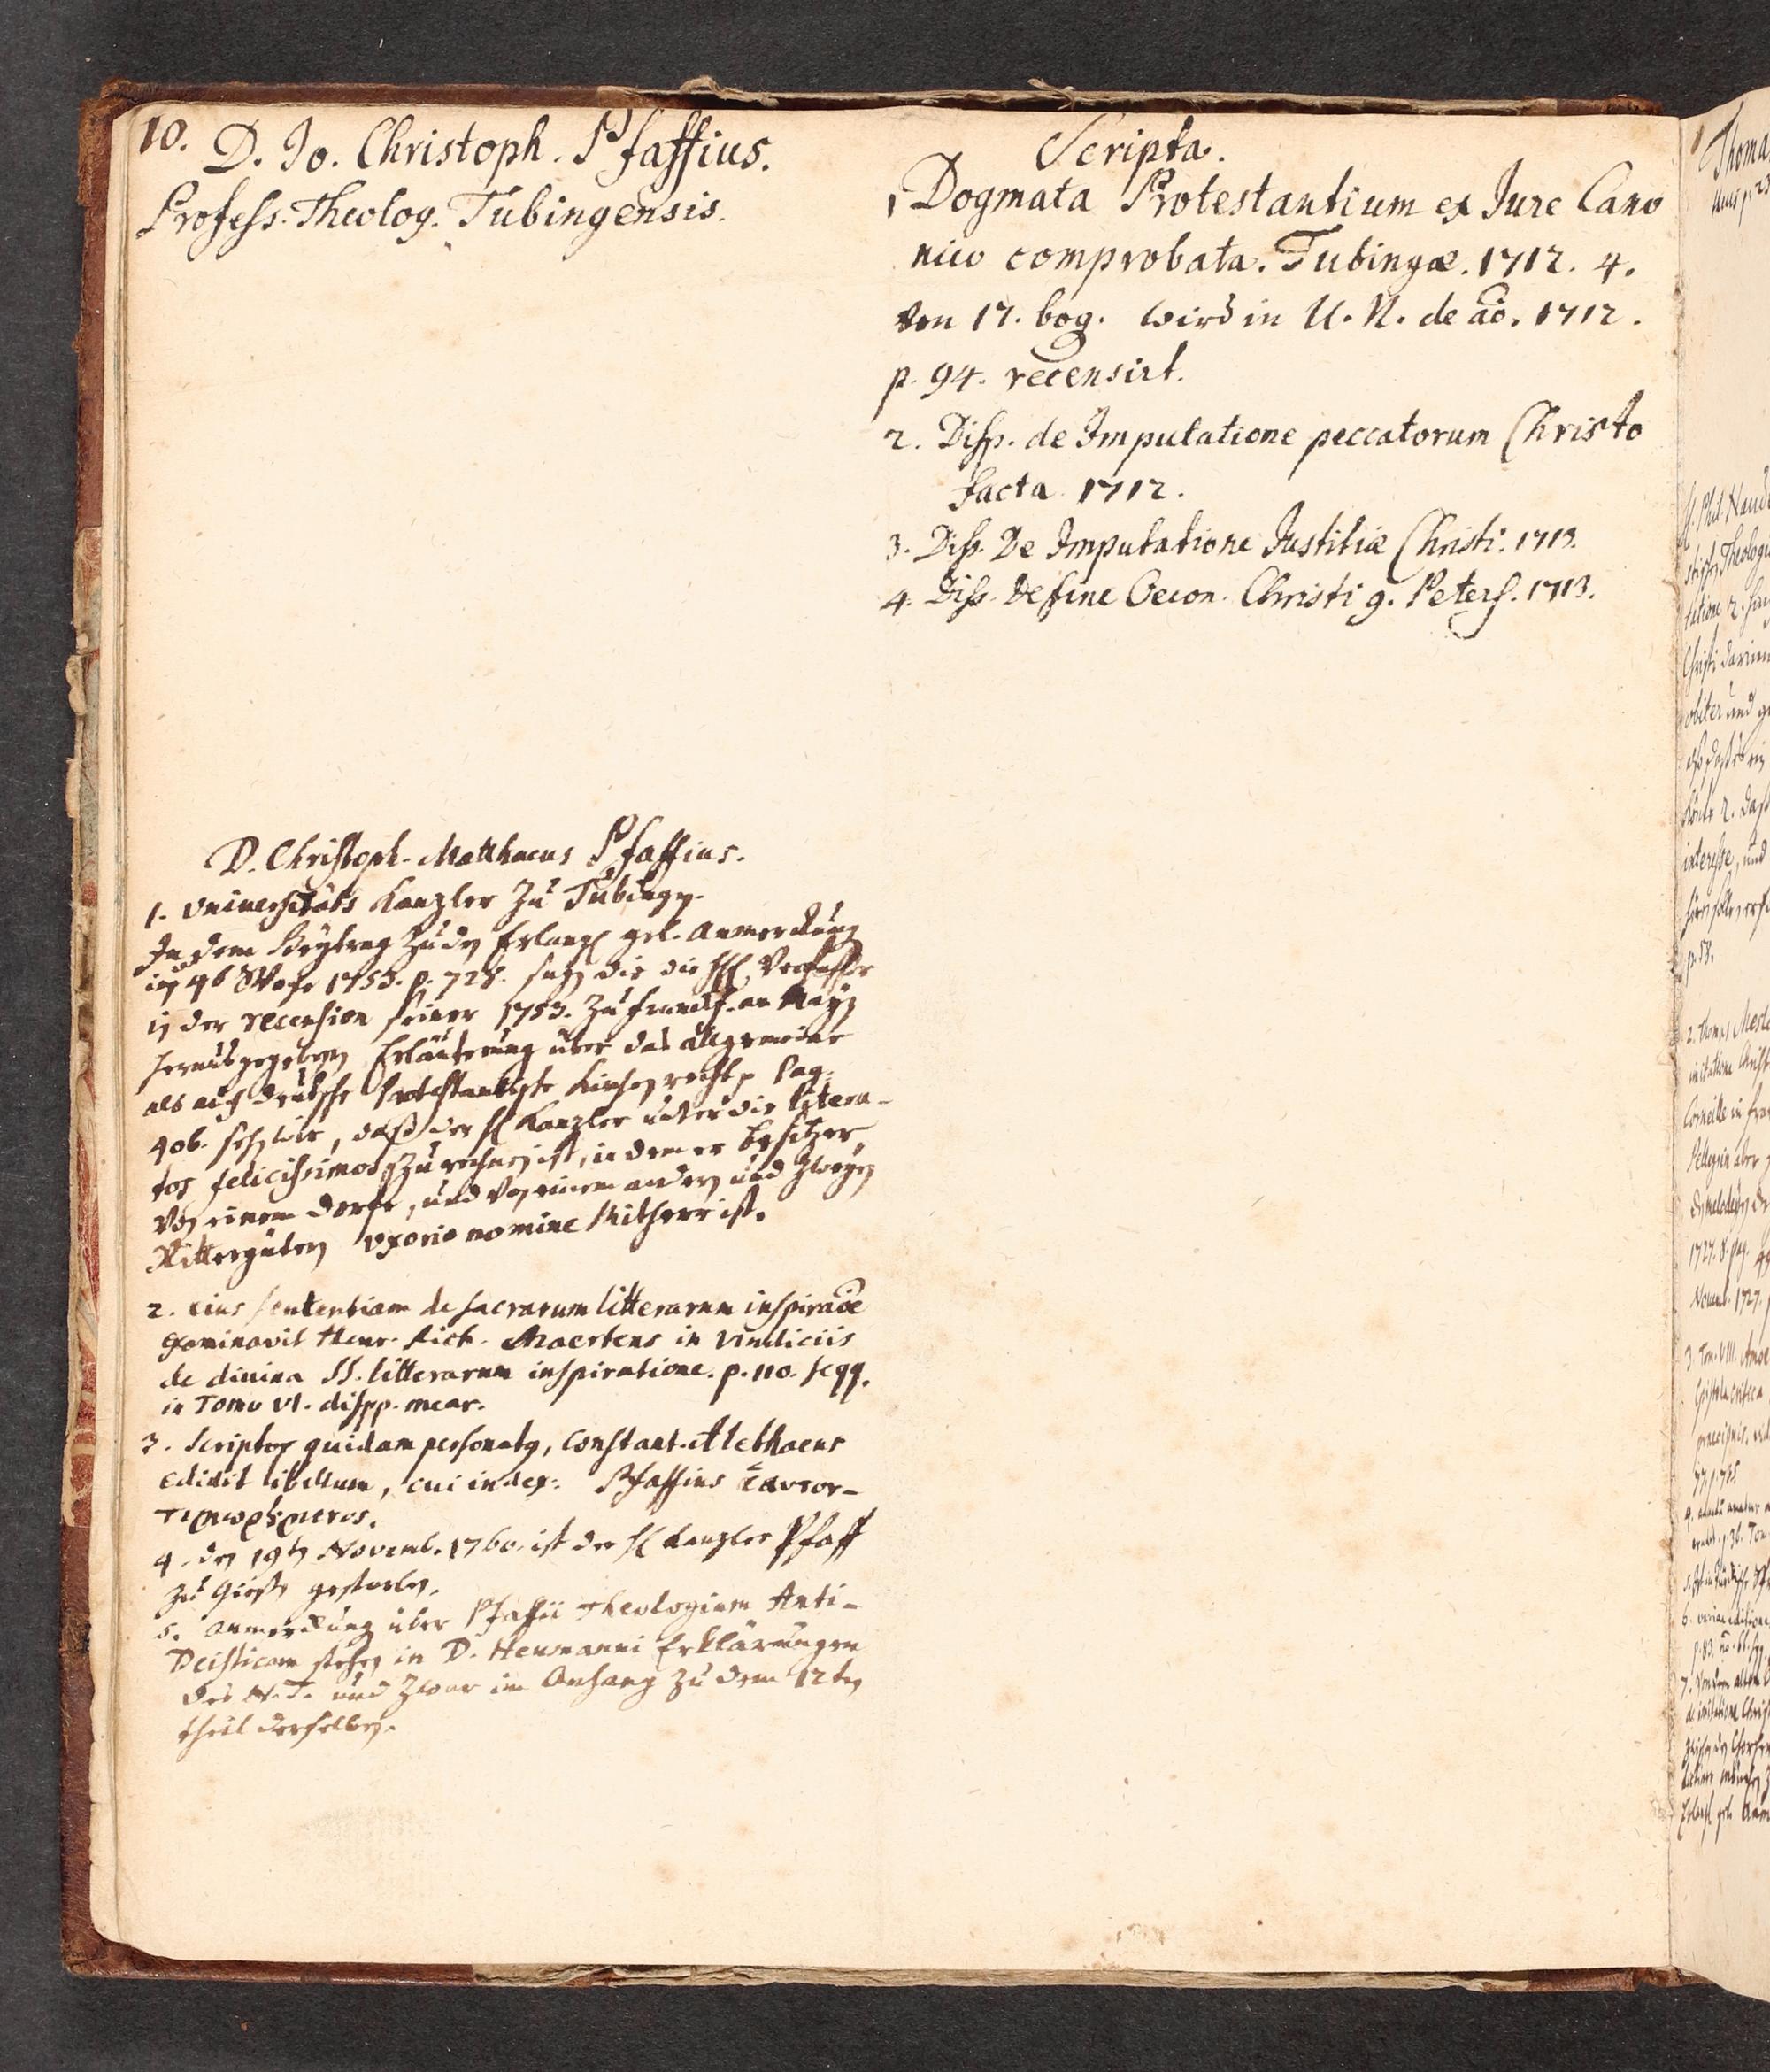 10. D. Jo. Christoph. Pfaffius.
Profess. Theolog. Tubingensis.
Scripta.
1 Dogmata Protestantium ex Jure Cano
nico comprobata. Tubingæ. 1712. 4.
von 17. bog. wird in U. N. de ao. 1712.
p. 94. recensirt.
2. Disp. de Imputatione peccatorum Christo
facta. 1712.
3. Diss. De Imputatione Justitiæ Christi. 1713.
4. Diss. De fine Oecon. Christi g. Peters. 1713.
D. Christoph. Matthaeus Pfaffius.
1. Universitäts Kanzler zu Tübingen.
In dem Beytrag zu den Erlang. gel. Anmerckung
im 46 Woche 1753. p. 728. sagen die die HH. Verfasser
in der recension seiner 1753. zu Franckf. am Mayn
herausgegebenen Erläuterung über das allgemeine
als auch deutsche Protestantische Kirchenrecht p Pag.
406. sehen wir, daß der H. Kanzler unter die litera-
tos felicissimos zu rechnen ist, indem er Besitzer,
von einem Dorfe, und von einem andern und zweyen
Rittergütern uxorio nomine Mitherr ist.
2. eius sententiam de sacrarum litterarum inspiratione
examinavit Henr. Rich. Maertens in vindiciis
de divina SS. litterarum inspiratione. p. 110. seqq.
in Tomo VI. dispp. mear.
3. Scriptor quidam personatus, Constant. Alethaeus
edidit libellum, cui index: Pfaffius
4. den 19ten Novemb. 1760. ist der H. Kanzler Pfaff
zu Giesen gestorben.
5. Anmerckung über Pfaffii Theologiam Anti-
Deisticam stehen in D. Heumanni Erklärungen
des N. T. und zwar im Anhang zu dem 12ten
theil derselben.